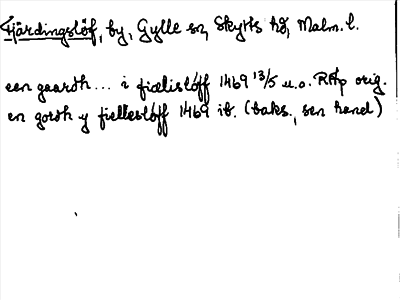 Fjärdingslöf, by, Gylle sn, Skytts hd, Malm. l.
een gaardh... i fiælisløff 1469 13/5 u.o. RAp orig.
en gordh y fiellesløff 1469 ib. (baks., sen hand)